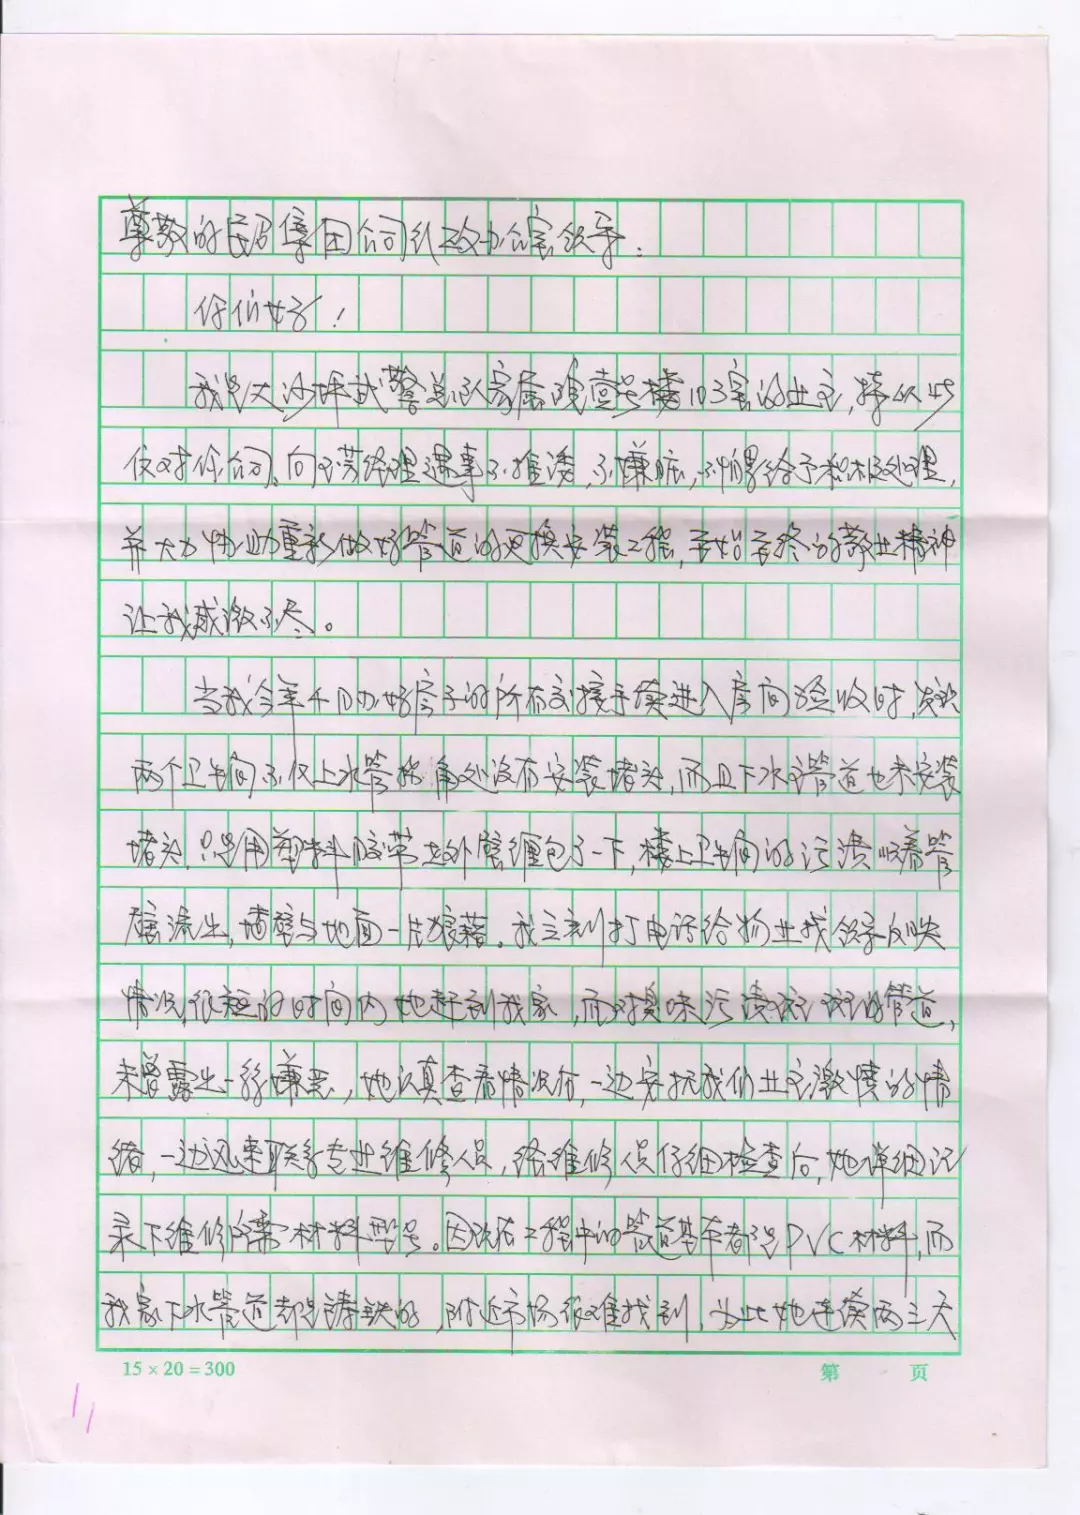 尊敬的民召集团公司行政办公室领导：
你们好！
我是大沙坪武警总队家属院壹号楼103室的业主，特以此
仅对你公司、向芳经理遇事不推诿，不嫌脏，不怕累给予积极处理，
并大力协助重新做好管道的更换安装工程，至始至终的敬业精神
让我感激不尽。
当我今年 办好房子的所有交接手续进入房间验收时，发现
两个卫生间不仅上水管拐角处没有安装堵头，而且下水主管道也未安装
堵头，只是用塑料胶带在外壁缠包了一下，楼上卫生间的污渍顺着管
壁流出，墙壁与地面一片狼藉。我立刻打电话给物业找领导反映
情况，很短的时间内她赶到我家，面对臭味污渍斑斑的管道，
未曾露出一丝嫌恶，她认真查看情况后，一边安抚我们业主激愤的情
绪，一边迅速联系专业维修人员，给维修人员仔细检查后，她详细记
录下维修所需材料型号。因现在工程中的管道基本都是PVC材料，而
我家下水管道却是铸铁的，附近市场很难找到，为此她连续两三天
15×20=300
第 页